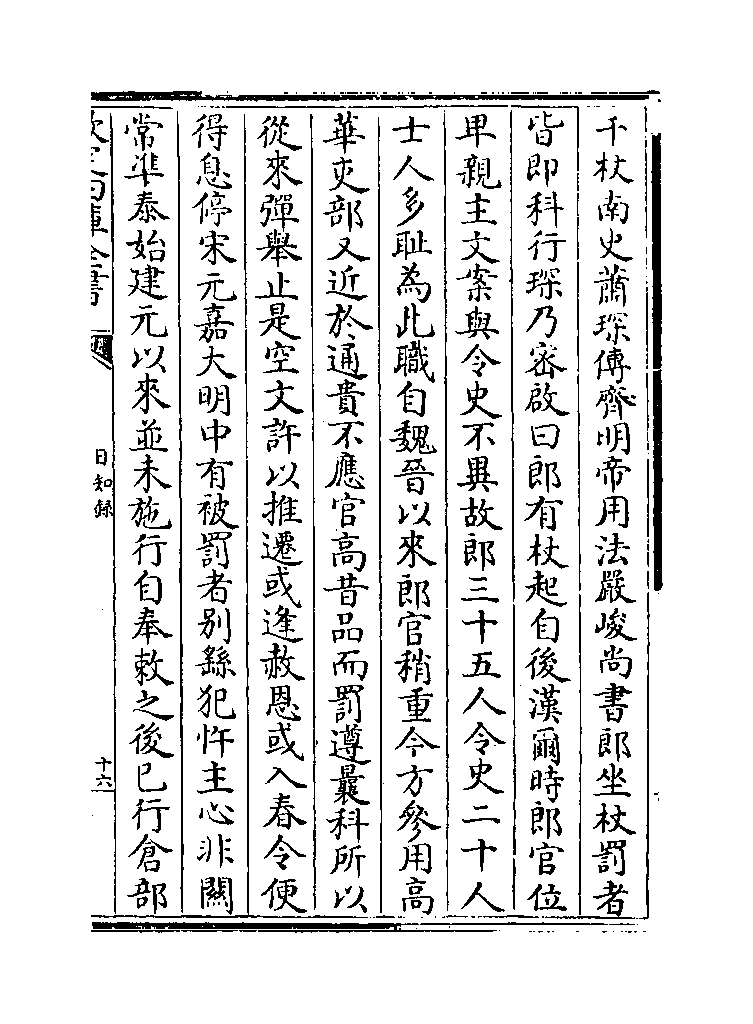 千杖南史蕭琛傳齊明帝用法嚴峻尚書郎坐杖罰者
皆即科行琛乃密啟曰郎有杖起自後漢爾時郎官位
卑親主文案與令史不異故郎三十五人令史二十人
士人多恥為此職自魏晉以來郎官稍重今方參用高
華吏部又近於通貴不應官高昔品而罰遵曩科所以
從來彈舉止是空文許以推遷或逢赦恩或入春令便
得息停宋元嘉大明中有被罰者别繇犯忤主心非關
常準泰始建元以來並未施行自奉敕之後已行倉部
欽定四庫全書
日知錄
十六